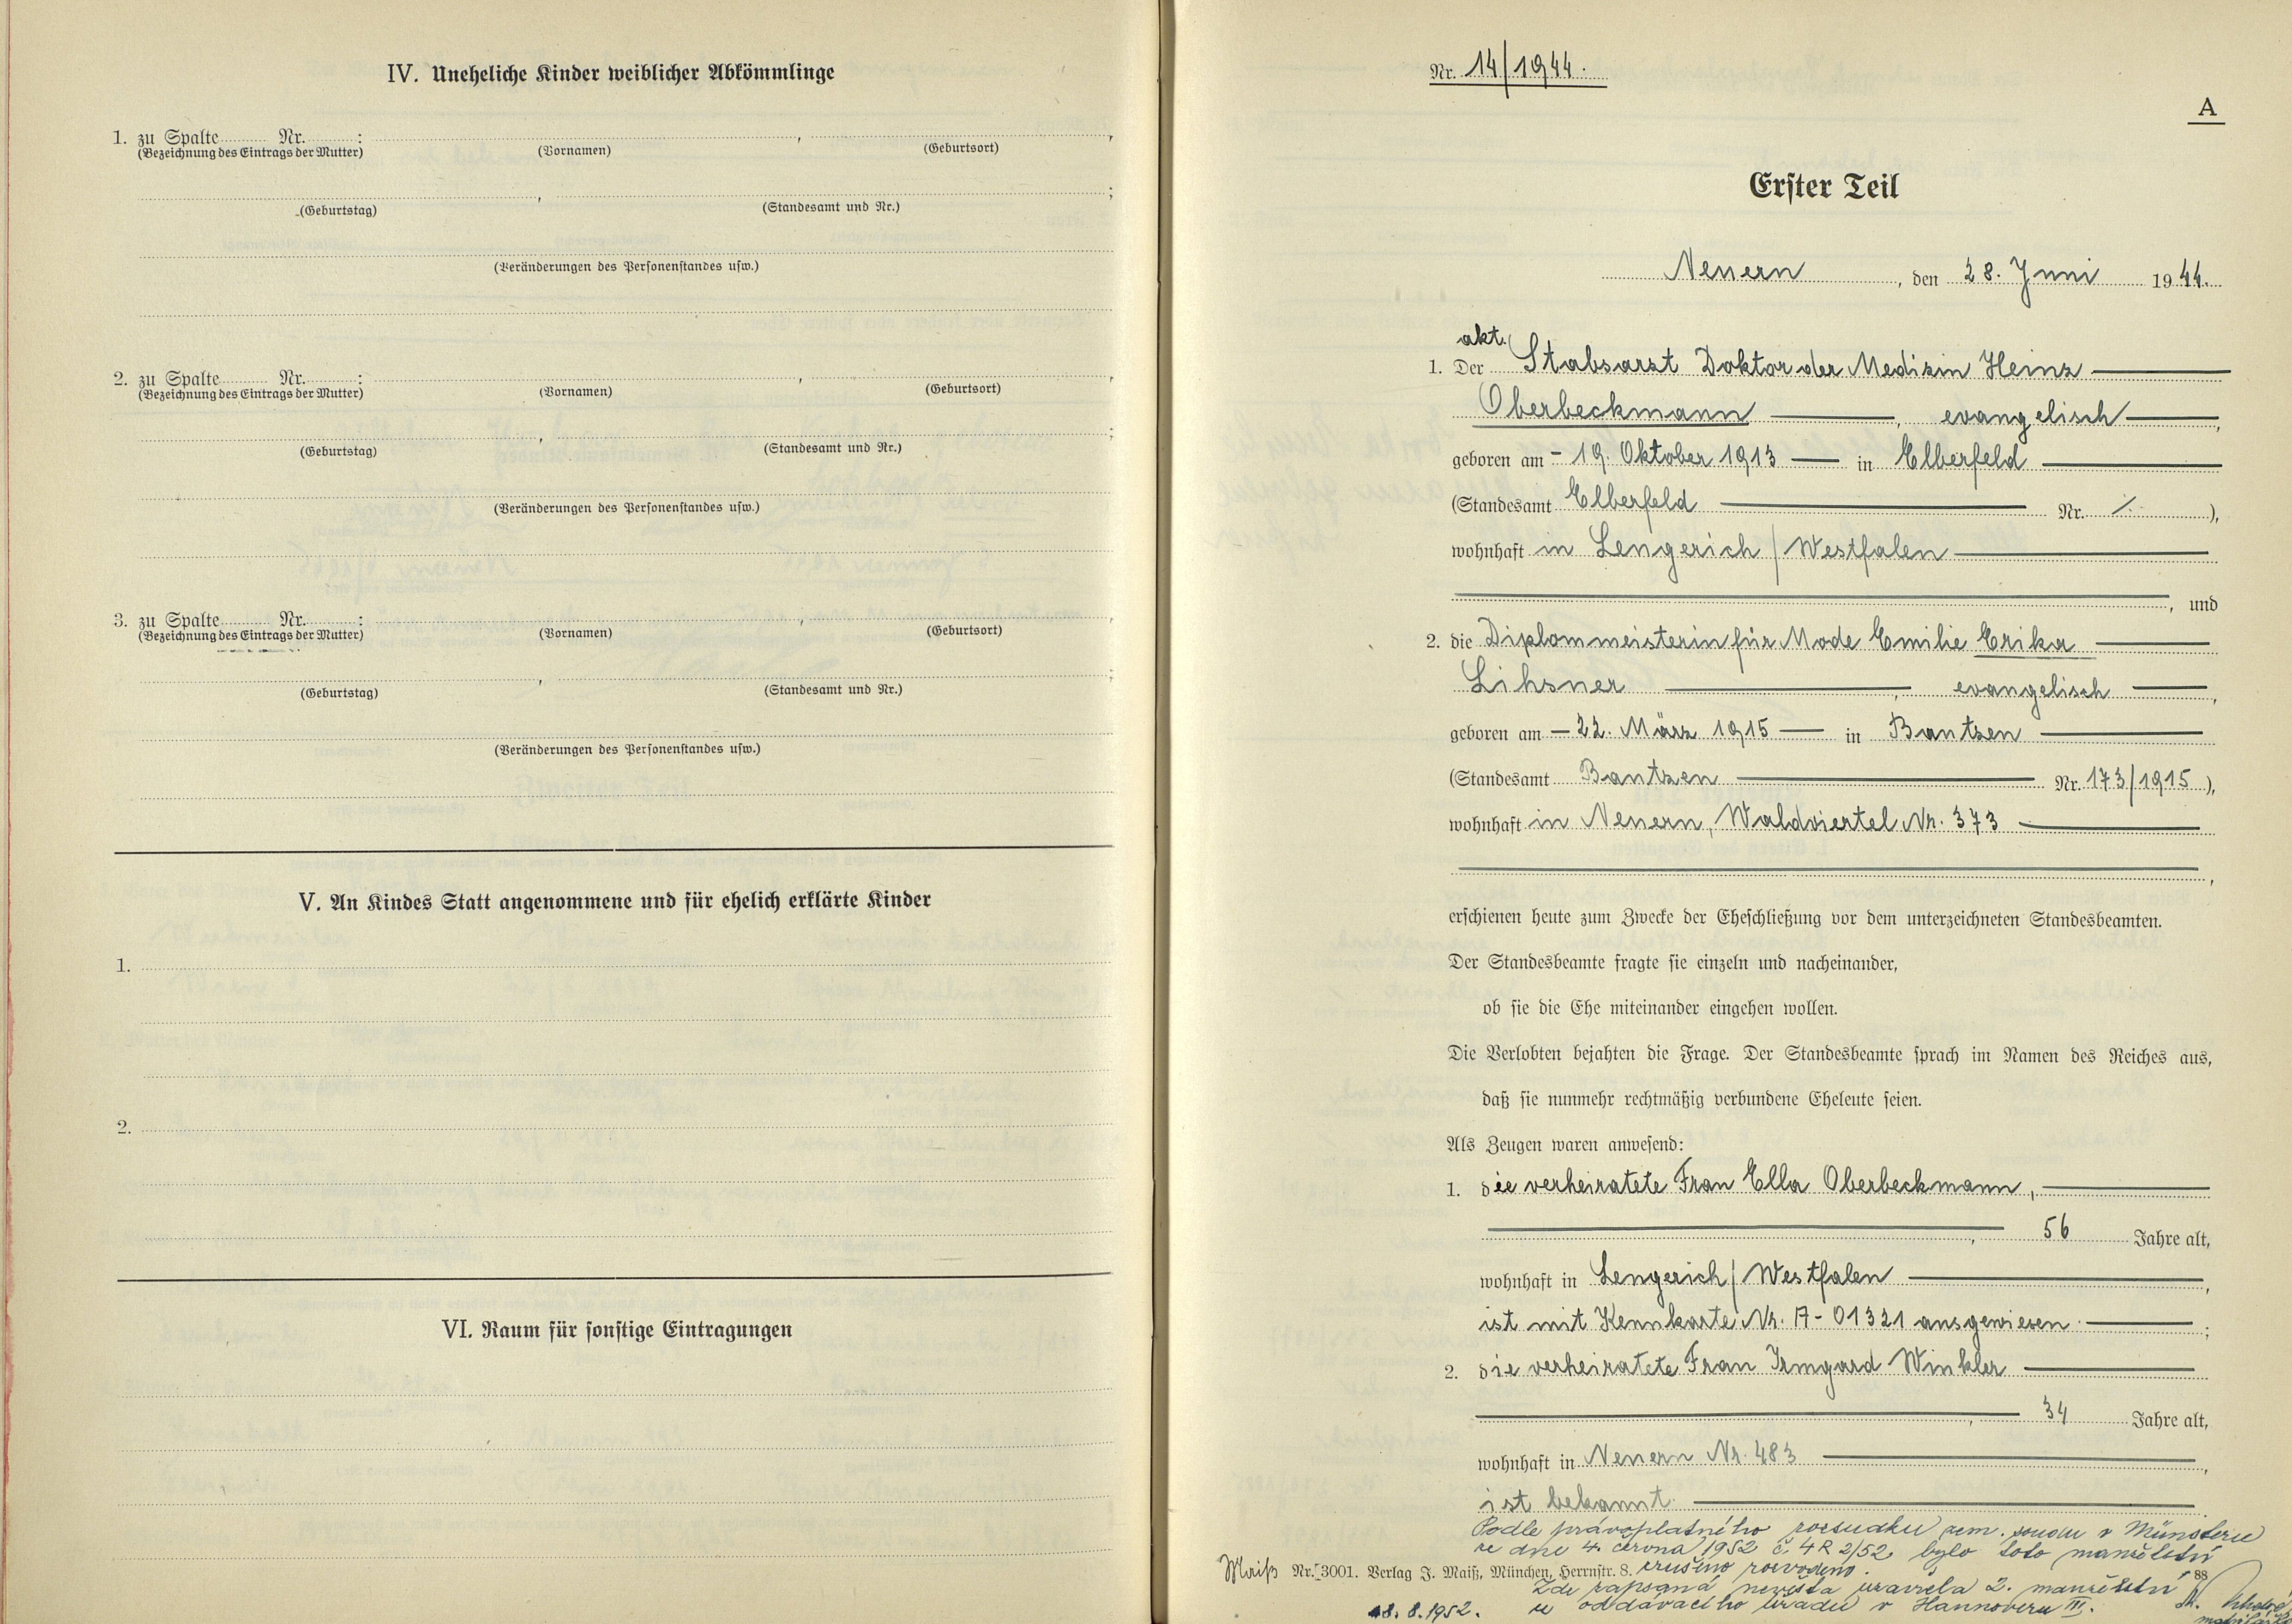 IV. Uneheliche Kinder weiblicher Abkömmlinge
1. zu Spalte Nr. : , ,
(Bezeichnung des Eintrags der Mutter) (Vornamen) (Geburtsort)
, ;
(Geburtstag) (Standesamt und Nr.)
(Veränderungen des Personenstandes usw.)
2. zu Spalte Nr. : , ,
(Bezeichnung des Eintrags der Mutter) (Vornamen) (Geburtsort)
, ;
(Geburtstag) (Standesamt und Nr.)
(Veränderungen des Personenstandes usw.)
3. zu Spalte Nr. : , ,
(Bezeichnung des Eintrags der Mutter) (Vornamen) (Geburtsort)
, ;
(Geburtstag) (Standesamt und Nr.)
(Veränderungen des Personenstandes usw.)
V. An Kindes Statt angenommene und für ehelich erklärte Kinder
1.
2.
VI. Raum für sonstige Eintragungen
Nr. 14/1944.
A
Erster Teil
Neuern, den 28. Juni 1944.
akt.
1. Der Stabsarzt Doktor der Medizin Heinz
Oberbeckmann, evangelisch,
geboren am - 19. Oktober 1913 — in Elberfeld
(Standesamt Elberfeld Nr. /. ),
wohnhaft in Lengerich/Westfalen
, und
2. die Diplommeisterin für Mode Emilie Erika
Lihsner, evangelisch,
geboren am — 22. März 1915 — in Bautzen
(Standesamt Bautzen Nr. 173/1915),
wohnhaft in Neuern, Waldviertel Nr. 373
,
erschienen heute zum Zwecke der Eheschließung vor dem unterzeichneten Standesbeamten.
Der Standesbeamte fragte sie einzeln und nacheinander,
ob sie die Ehe miteinander eingehen wollen.
Die Verlobten bejahten die Frage. Der Standesbeamte sprach im Namen des Reiches aus,
daß sie nunmehr rechtmäßig verbundene Eheleute seien.
Als Zeugen waren anwesend:
1. die verheiratete Frau Ella Oberbeckmann,
, 56 Jahre alt,
wohnhaft in Lengerich/Westfalen,
ist mit Kennkarte Nr. A-01321 ausgewiesen;
2. die verheiratete Frau Irmgard Winkler
, 34 Jahre alt,
wohnhaft in Neuern Nr. 483,
ist bekannt.
Podle právoplatného rozsudku zem. soudu v Münsteru
ze dne 4. června 1952 č. 4R 2/52 bylo toto manželství
zrušeno rozvodem.
Maiß Nr. 3001. Verlag J. Maiß, München, Herrnstr. 8.
88
Zde zapsaná nevěsta uzavřela 2. manželství
u oddávacího úřadu v Hannoveru III.
18.8.1952.